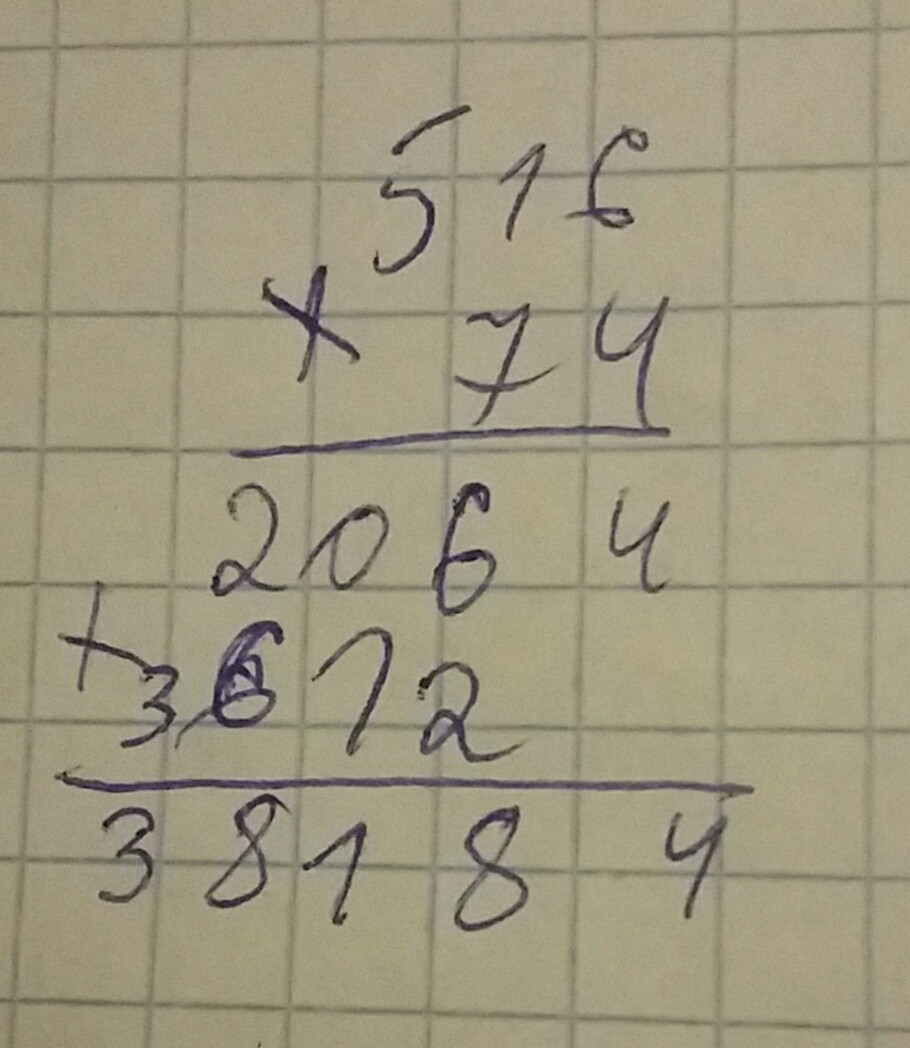 516
× 74
2064
+ 3612
38184